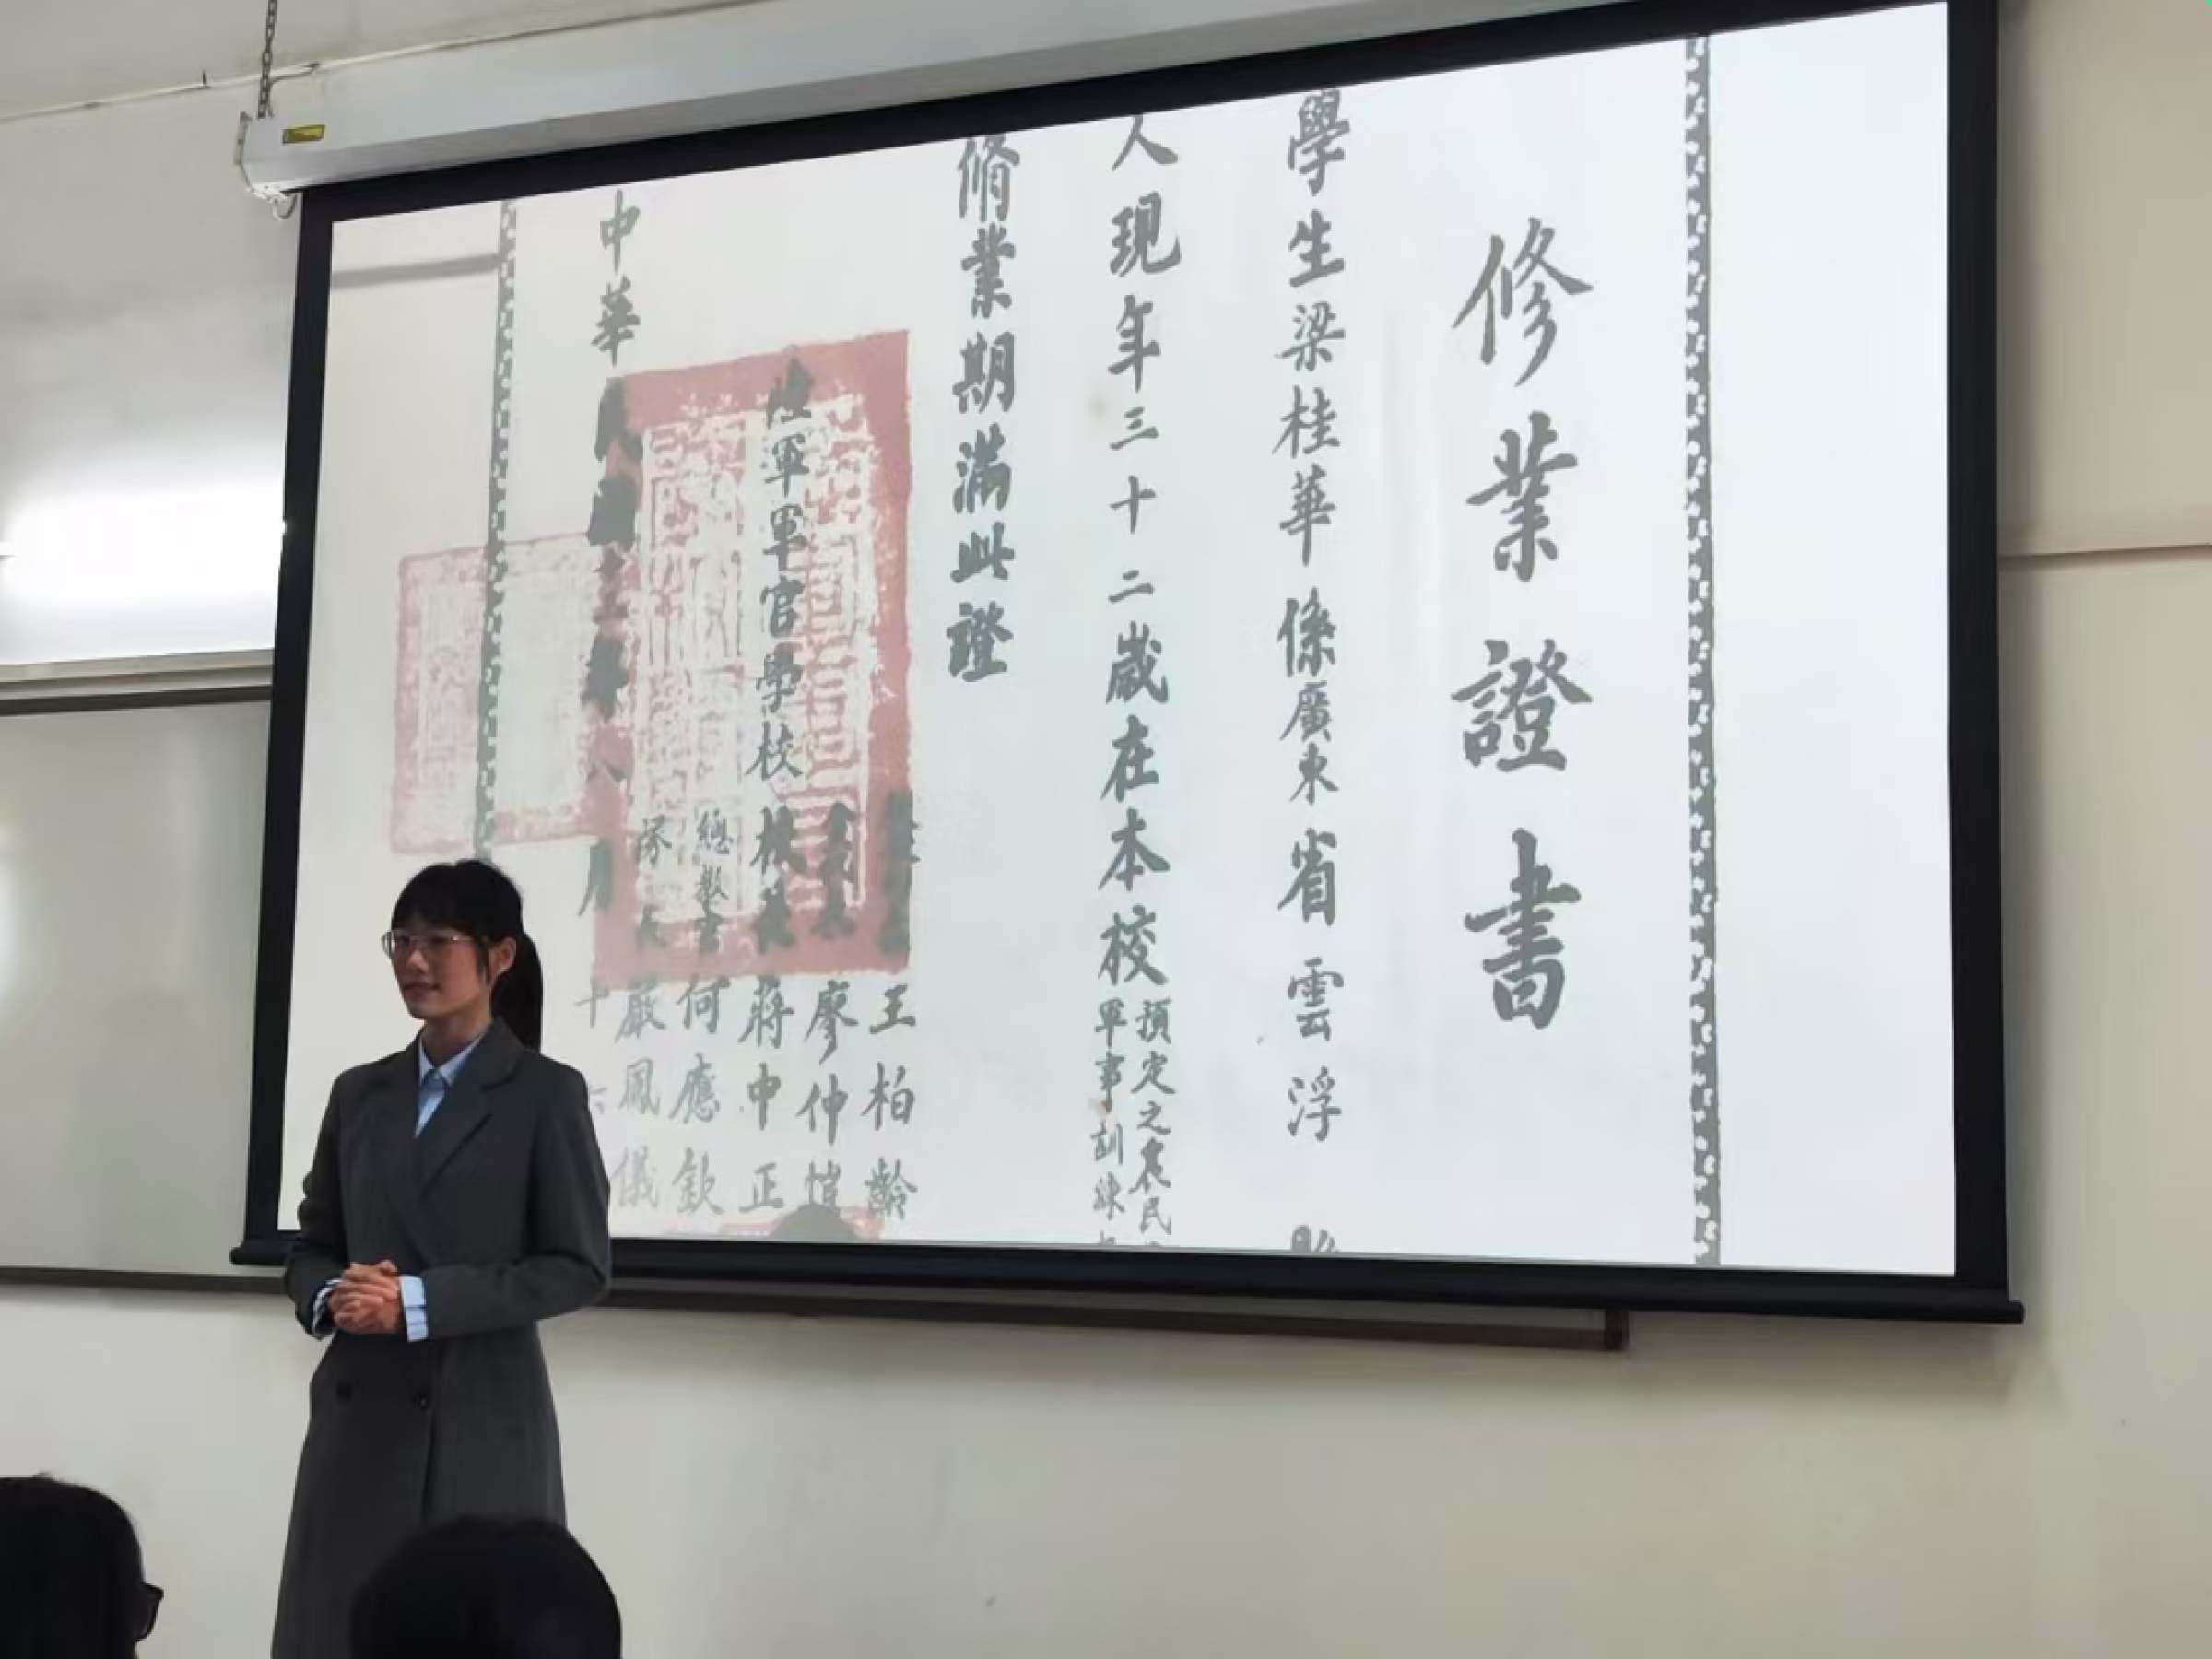 修業證書
學生梁桂華係廣東省雲浮
人現年三十二歲在本校預定之農民
軍事訓練
脩業期滿此證
王柏齡
廖仲愷
陸軍軍官學校校長蔣中正
總教官何應欽
嚴鳳儀
中華民國十三年八月十